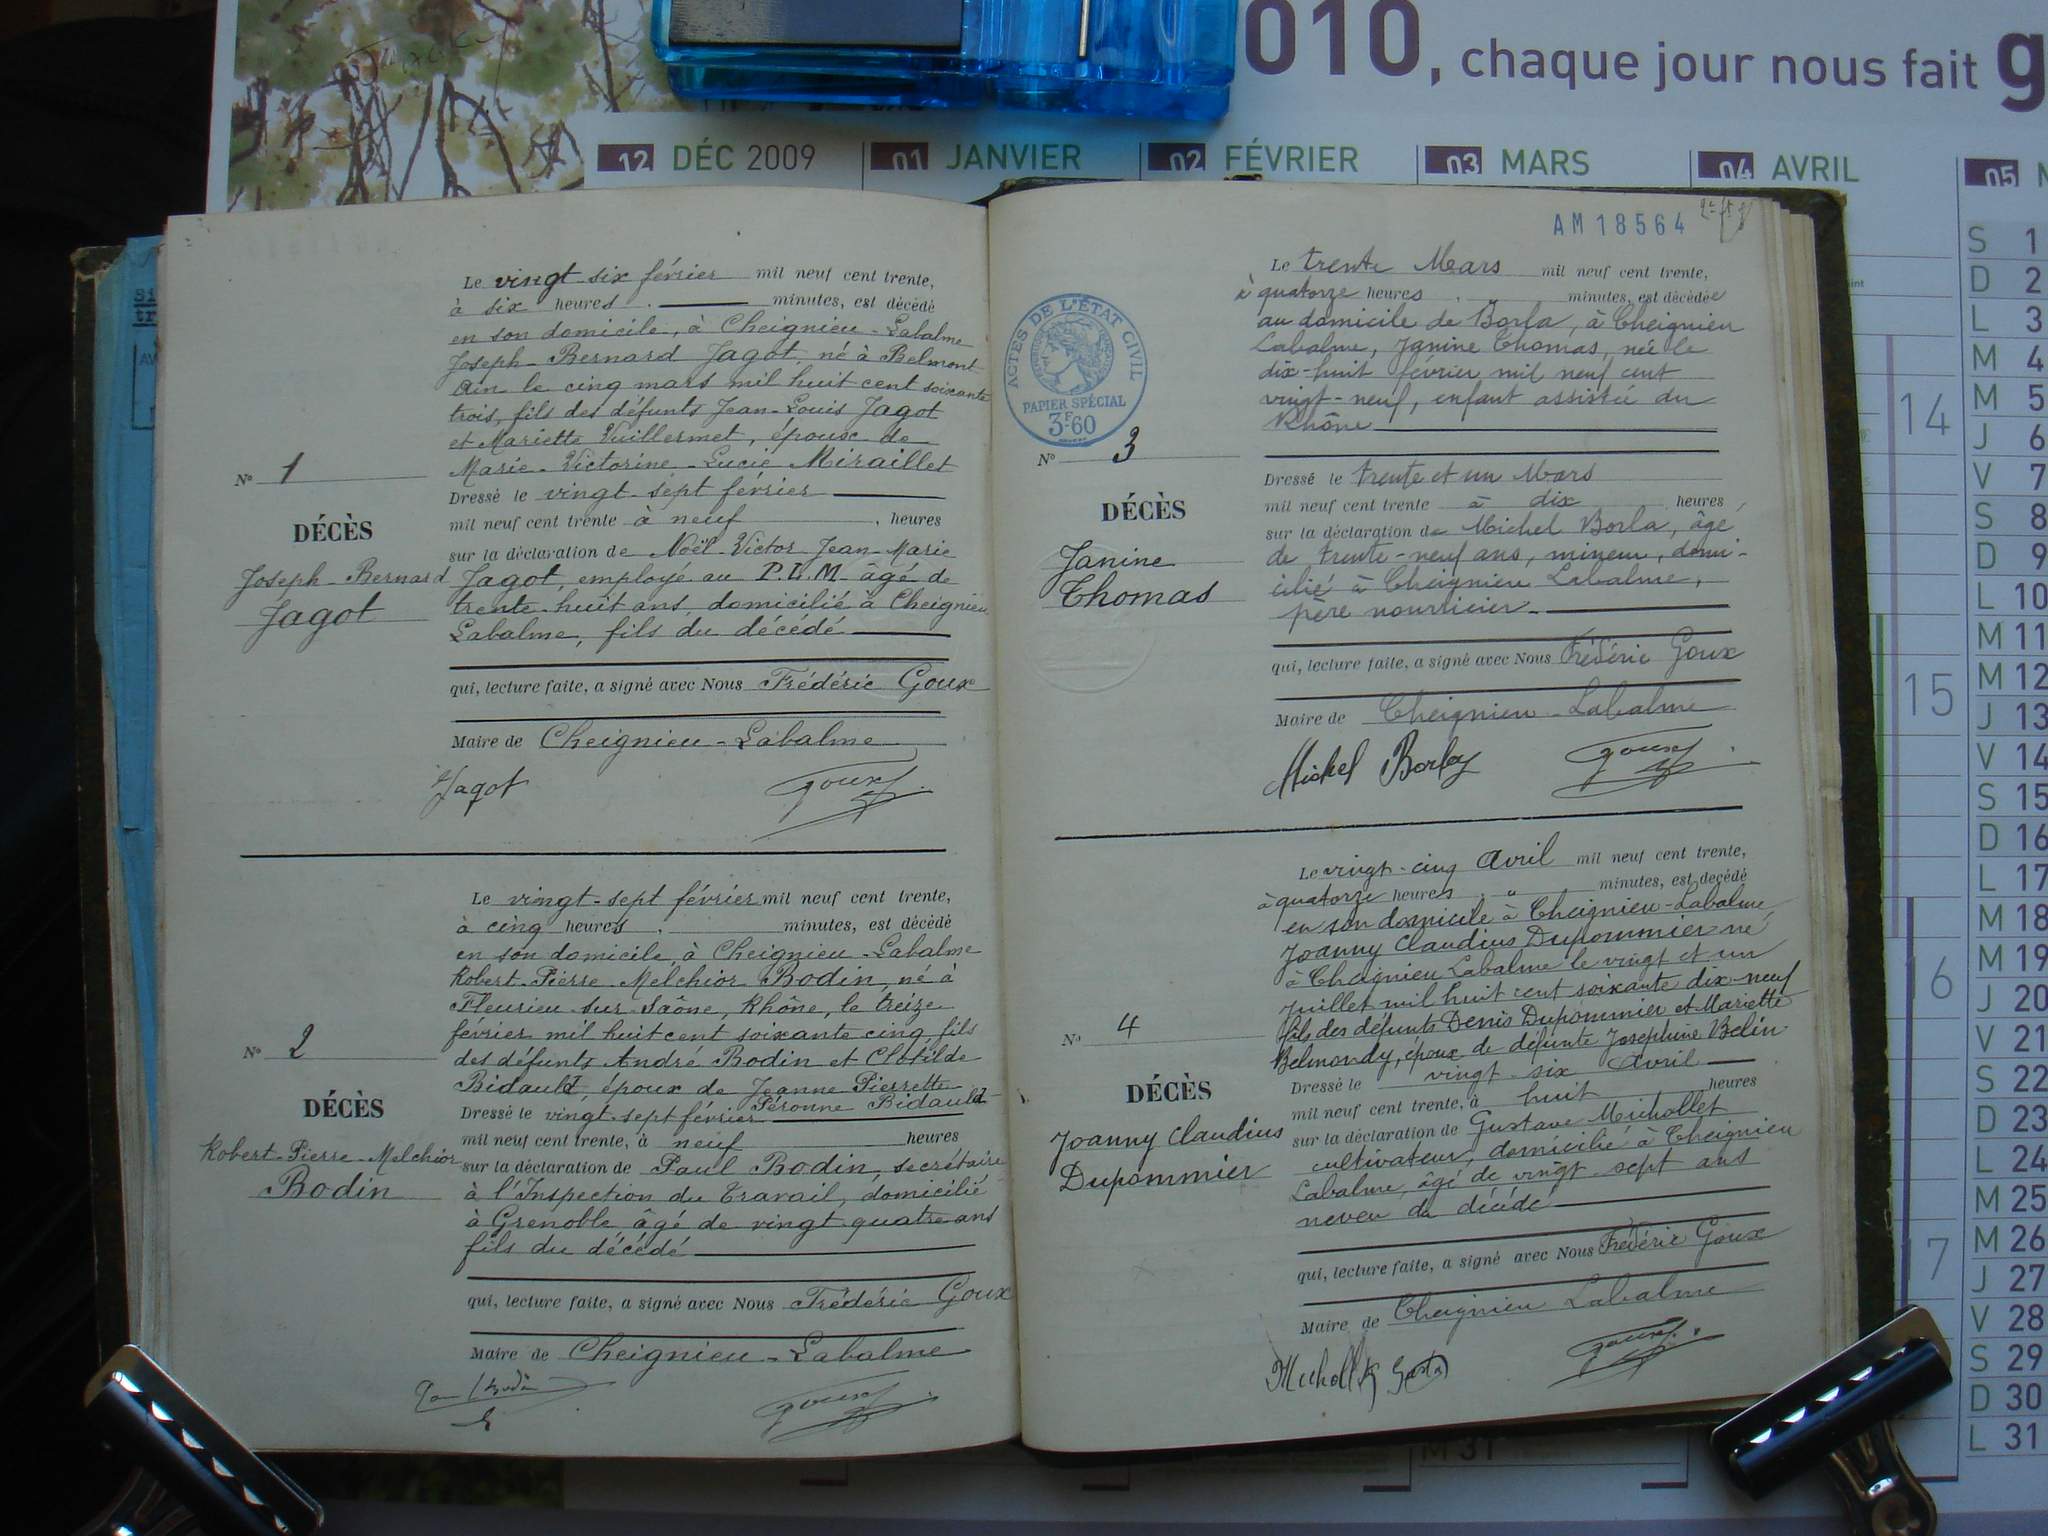 010, chaque jour nous fait g
12 DÉC 2009
01 JANVIER
02 FÉVRIER
03 MARS
04 AVRIL
05 M
Le vingt-six février mil neuf cent trente,
à six heures . minutes, est décédé
en son domicile, à Cheignieu-Labalme
Joseph-Bernard Jagot, né à Belmont
Ain le cinq mars mil huit cent soixante
trois, fils des défunts Jean-Louis Jagot
et Mariette Vuillermet, époux de
Marie-Victorine-Lucie Miraillet
Dressé le vingt-sept février
mil neuf cent trente à neuf heures
sur la déclaration de Noël-Victor Jean-Marie
Jagot, employé au P.L.M. âgé de
trente-huit ans, domicilié à Cheignieu
Labalme, fils du décédé
qui, lecture faite, a signé avec Nous Frédéric Goux
Maire de Cheignieu-Labalme
Jagot
Goux
N° 1
DÉCÈS
Joseph-Bernard
Jagot
Le vingt-sept février mil neuf cent trente,
à cinq heures . minutes, est décédé
en son domicile, à Cheignieu-Labalme
Robert-Pierre-Melchior Bodin, né à
Fleurieu-sur-Saône, Rhône, le treize
février mil huit cent soixante cinq, fils
des défunts André Bodin et Clotilde
Bidault, époux de Jeanne Pierrette
Péronne Bidault
Dressé le vingt-sept février
mil neuf cent trente, à neuf heures
sur la déclaration de Paul Bodin, secrétaire
à l'Inspection du Travail, domicilié
à Grenoble âgé de vingt quatre ans
fils du décédé
qui, lecture faite, a signé avec Nous Frédéric Goux
Maire de Cheignieu-Labalme
Goux
N° 2
DÉCÈS
Robert-Pierre-Melchior
Bodin
AM 18564
ACTES DE L'ÉTAT CIVIL
RÉPUBLIQUE FRANÇAISE
PAPIER SPÉCIAL
3F60
Le trente Mars mil neuf cent trente,
à quatorze heures . " minutes, est décédée
au domicile de Borla, à Cheignieu
Labalme, Janine Thomas, née le
dix-huit février mil neuf cent
vingt-neuf, enfant assistée du
Rhône
Dressé le trente et un Mars
mil neuf cent trente à dix heures
sur la déclaration de Michel Borla, âgé
de trente-neuf ans, mineur, domi-
cilié à Cheignieu Labalme,
père nourricier.
qui, lecture faite, a signé avec Nous Frédéric Goux
Maire de Cheignieu-Labalme
Michel Borla
Goux
N° 3
DÉCÈS
Janine
Thomas
Le vingt-cinq Avril mil neuf cent trente,
à quatorze heures . " minutes, est decédé
en son domicile à Cheignieu-Labalme
Joanny Claudius Dupommier né
à Cheignieu Labalme le vingt et un
Juillet mil huit cent soixante dix-neuf
fils des défunts Denis Dupommier et Mariette
Belmondy, époux de défunte Josephine Belin.
Dressé le vingt-six Avril
mil neuf cent trente, à huit heures
sur la déclaration de Gustave Michollet
cultivateur, domicilié à Cheignieu
Labalme, âgé de vingt-sept ans
neveu du décédé
qui, lecture faite, a signé avec Nous Frédéric Goux
Maire de Cheignieu Labalme
Goux
N° 4
DÉCÈS
Joanny Claudius
Dupommier
S 1
D 2
L 3
M 4
M 5
J 6
V 7
S 8
D 9
L 10
M 11
M 12
J 13
V 14
S 15
D 16
L 17
M 18
M 19
J 20
V 21
S 22
D 23
L 24
M 25
M 26
J 27
V 28
S 29
D 30
L 31
14
15
16
17
M 31